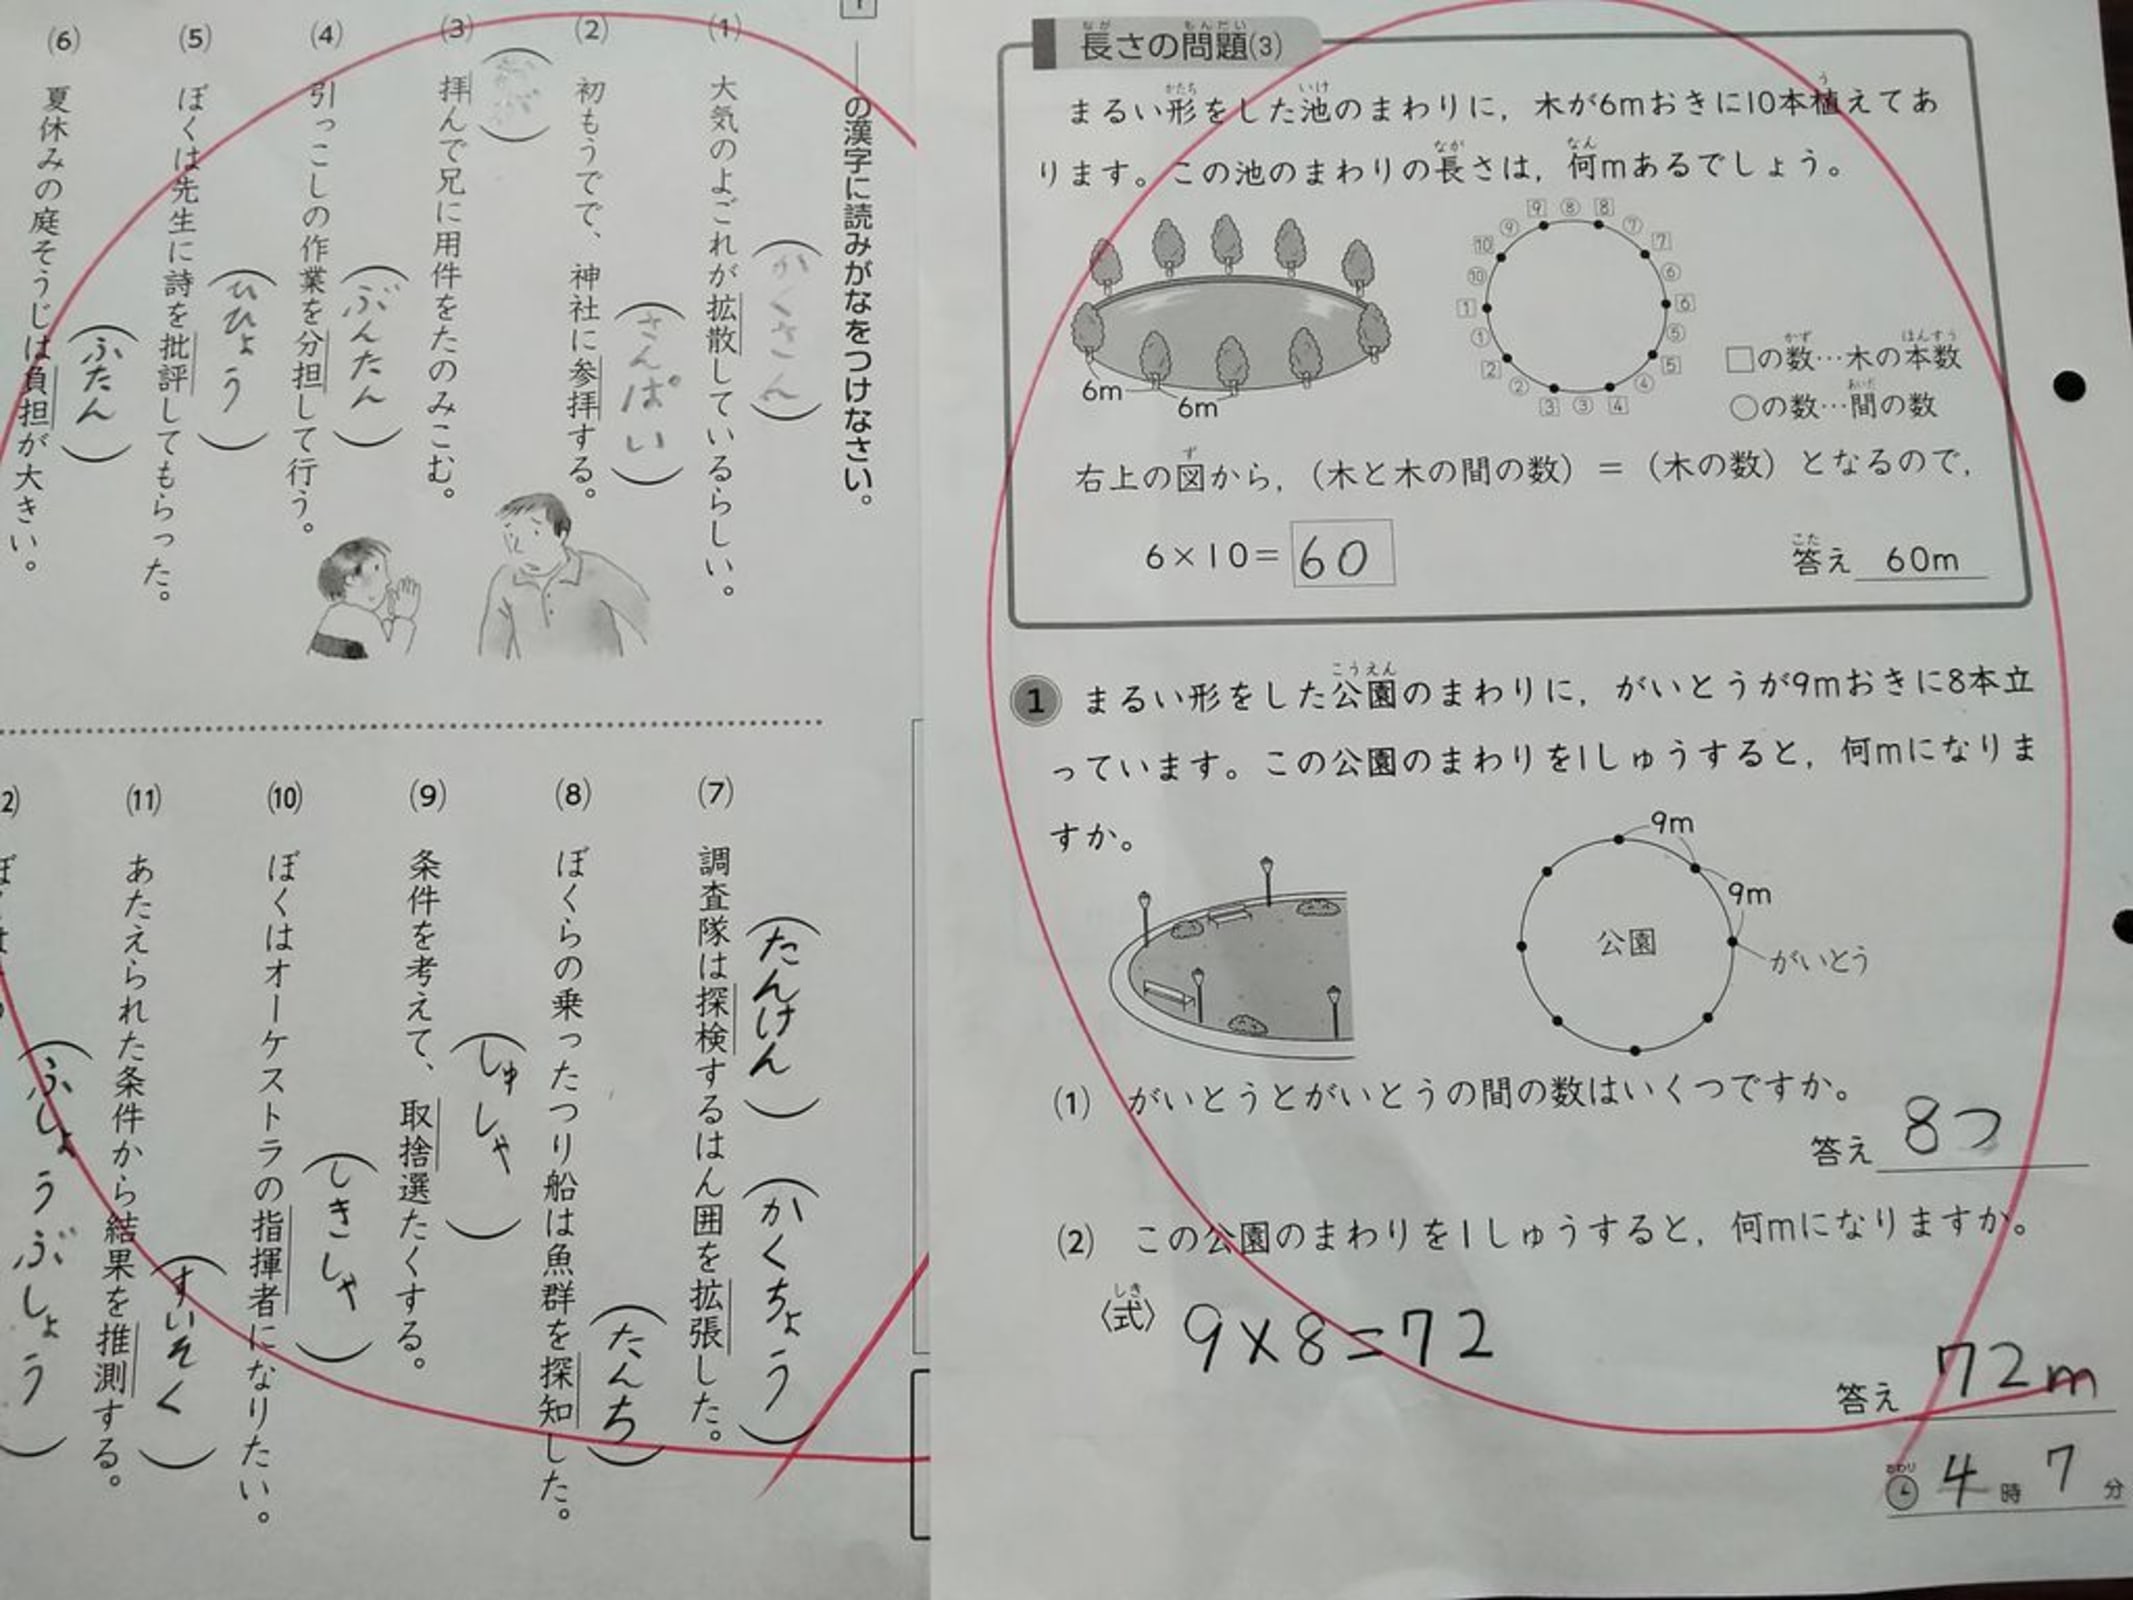 ――の漢字に読みがなをつけなさい。
(1) 大気のよごれが拡散しているらしい。
(かくさん)
(2) 初もうでで、神社に参拝する。
(さんぱい)
(3) 拝んで兄に用件をたのみこむ。
(4) 引っこしの作業を分担して行う。
(ぶんたん)
(5) ぼくは先生に詩を批評してもらった。
(ひひょう)
(6) 夏休みの庭そうじは負担が大きい。
(ふたん)
(7) 調査隊は探検するはん囲を拡張した。
(たんけん) (かくちょう)
(8) ぼくらの乗ったつり船は魚群を探知した。
(たんち)
(9) 条件を考えて、取捨選たくする。
(しゅしゃ)
(10) ぼくはオーケストラの指揮者になりたい。
(しきしゃ)
(11) あたえられた条件から結果を推測する。
(すいそく)
ふしょうぶしょう)
長さの問題(3)
まるい形をした池のまわりに，木が6mおきに10本植えてあ
ります。この池のまわりの長さは，何mあるでしょう。
9 ⑧ 8
⑨ ⑦
10 7
⑩ ⑥
1 6
① ⑤
2 5
② ④
3 ③ 4
6m
6m
□の数…木の本数
○の数…間の数
右上の図から，（木と木の間の数）＝（木の数）となるので，
6×10＝60
答え 60m
1 まるい形をした公園のまわりに，がいとうが9mおきに8本立
っています。この公園のまわりを1しゅうすると，何mになりま
すか。
9m
9m
公園
がいとう
(1) がいとうとがいとうの間の数はいくつですか。
答え 8つ
(2) この公園のまわりを1しゅうすると，何mになりますか。
〈式〉 9×8=72
答え 72m
おわり 4時7分